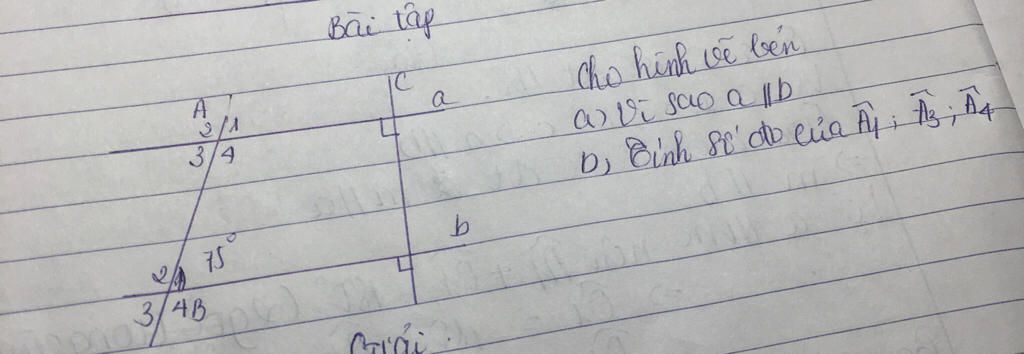 Bài tập
Cho hình vẽ bên
a) Vì sao a || b
b, Tính số đo của Â1 ; Â3 ; Â4
C
a
A
2 1
3 4
b
75°
2 1
3 4 B
Giải :